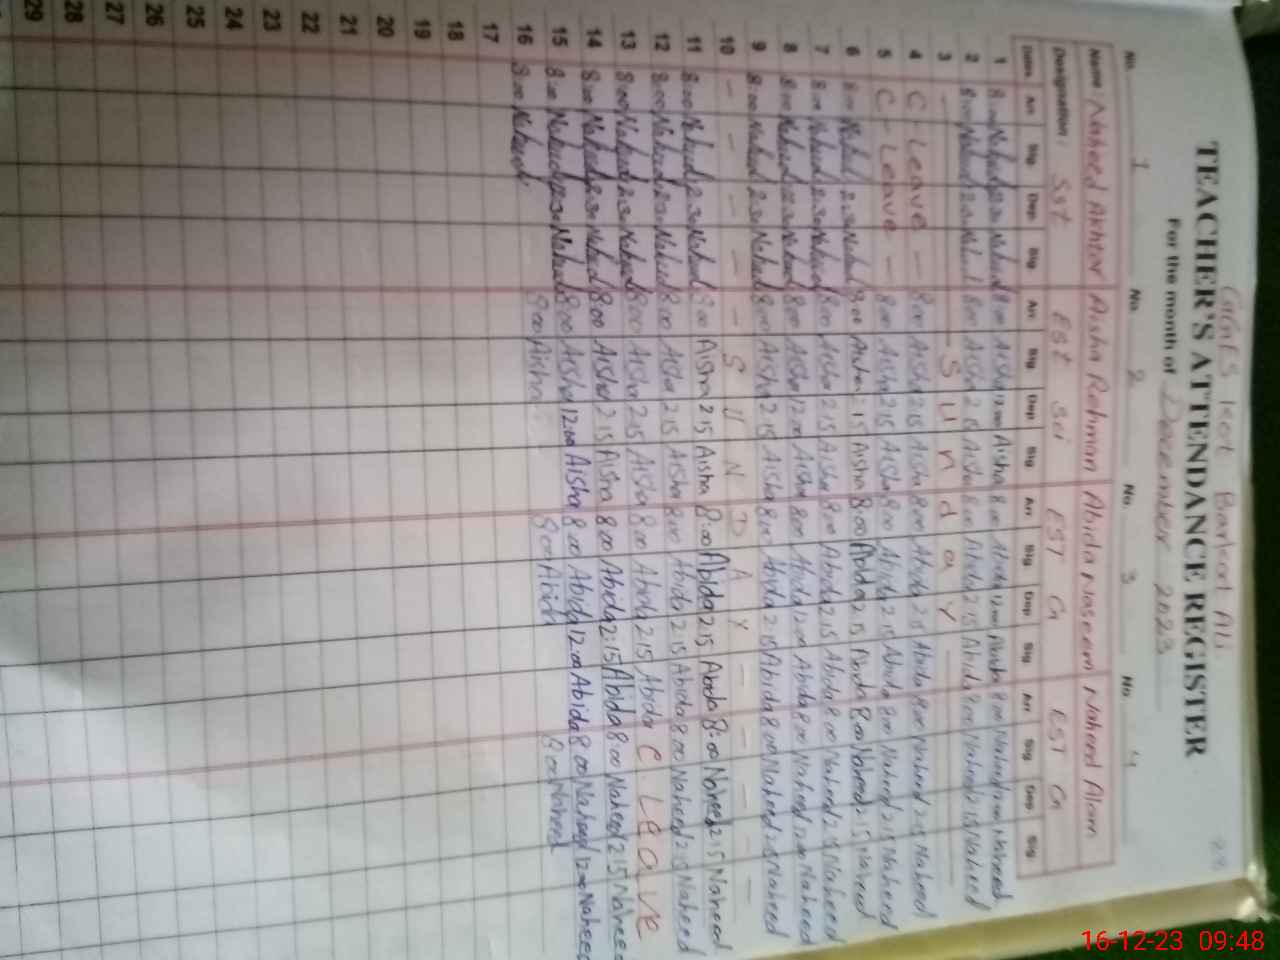 TEACHER'S ATTENDANCE REGISTER
For the month of December 2023
No. 1 No. 2 No. 3 No. 4
Name: Naheed Akhtar Aisha Rehman Abida Naseem Naheed Alam
Designation: Sst Est Sci EST G EST G
Dates Arr Sig Dep Sig Arr Sig Dep Sig Arr Sig Dep Sig Arr Sig Dep Sig
1 8:00 Naheed 8:00 Aisha 12:00 Aisha 8:00 Abida 12:00 Abida 8:00 Naheed 12:00 Naheed
2 8:00 Naheed 8:00 Aisha 2 15 Aisha 8:00 Abida 2 15 Abida 8:00 Naheed 2 15 Naheed
3 — Sunday —
4 C - Leave — 8:00 Aisha 2 15 Aisha 8:00 Abida 2 15 Abida 8:00 Naheed 2 15 Naheed
5 C - Leave — 8:00 Aisha 2 15 Aisha 8:00 Abida 2 15 Abida 8:00 Naheed 2 15 Naheed
6 8:00 Naheed 2 30 Naheed 8:00 Aisha 2 15 Aisha 8:00 Abida 2 15 Abida 8:00 Naheed 2 15 Naheed
7 8:00 Naheed 2 30 Naheed 8:00 Aisha 2 15 Aisha 8:00 Abida 2 15 Abida 8:00 Naheed 2 15 Naheed
8 8:00 Naheed 8:00 Aisha 12:00 Aisha 8:00 Abida 12:00 Abida 8:00 Naheed 12:00 Naheed
9 8:00 Naheed 2 30 Naheed 8:00 Aisha 2 15 Aisha 8:00 Abida 2 15 Abida 8:00 Naheed 2 15 Naheed
10 - - - - - S U N D A Y - - - - -
11 8:00 Naheed 2 30 Naheed 8:00 Aisha 2 15 Aisha 8:00 Abida 2 15 Abida 8:00 Naheed 2 15 Naheed
12 8:00 Naheed 2 30 Naheed 8:00 Aisha 2 15 Aisha 8:00 Abida 2 15 Abida 8:00 Naheed 2 15 Naheed
13 8:00 Naheed 2 30 Naheed 8:00 Aisha 2 15 Aisha 8:00 Abida 2 15 Abida C. Leave
14 8:00 Naheed 2 30 Naheed 8:00 Aisha 2 15 Aisha 8:00 Abida 2:15 Abida 8:00 Naheed 2 15 Naheed
15 8:00 Naheed 2 30 Naheed 8:00 Aisha 12:00 Aisha 8:00 Abida 12:00 Abida 8:00 Naheed 12:00 Naheed
16 8:00 Naheed 8:00 Aisha 8:00 Abida 8:00 Naheed
17
18
19
20
21
22
23
24
25
26
27
28
29
16-12-23 09:48